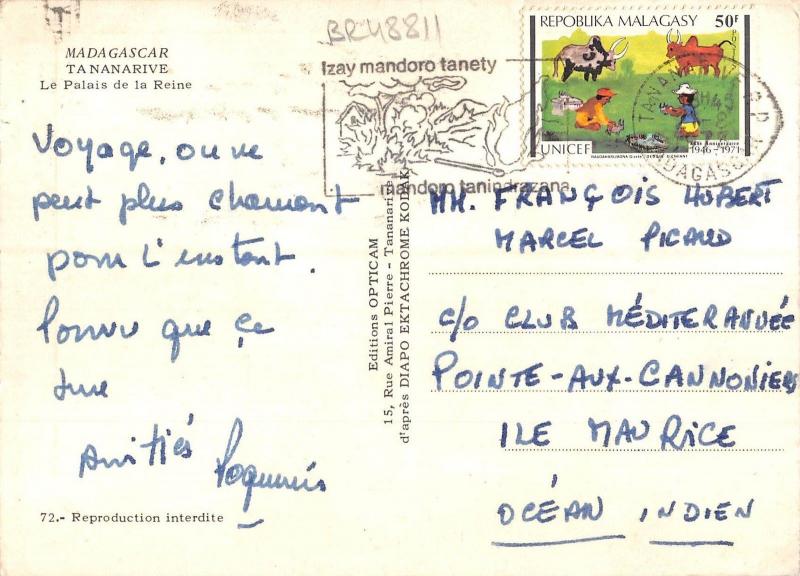 BR48811
MADAGASCAR
TANANARIVE
Le Palais de la Reine
Izay mandoro tanety
mandoro tanindrazana
REPOBLIKA MALAGASY 50F
UNICEF
1946-1971
Voyage, on ne
peut plus charmant
pour l'instant.
Pourvu que ça
dure
Amitiés
72.- Reproduction interdite
Editions OPTICAM
15, Rue Amiral Pierre - Tananarive
d'après DIAPO EKTACHROME KODAK
MM. FRANÇOIS HUBERT
MARCEL PICAUD
c/o CLUB MÉDITERANNÉE
POINTE-AUX-CANNONIERS
ILE MAURICE
OCÉAN INDIEN